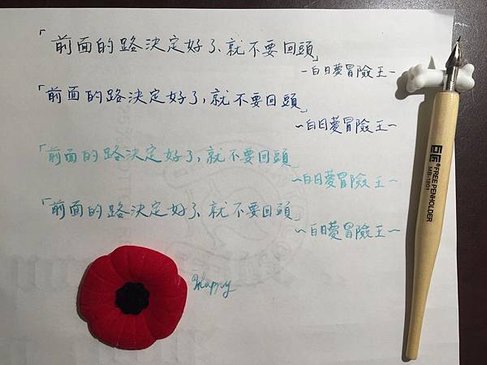 「前面的路決定好了,就不要回頭」
~白日夢冒險王~
「前面的路決定好了,就不要回頭」
~白日夢冒險王~
「前面的路決定好了,就不要回頭」
~白日夢冒險王~
「前面的路決定好了,就不要回頭」
~白日夢冒險王~
FREE PENHOLDER